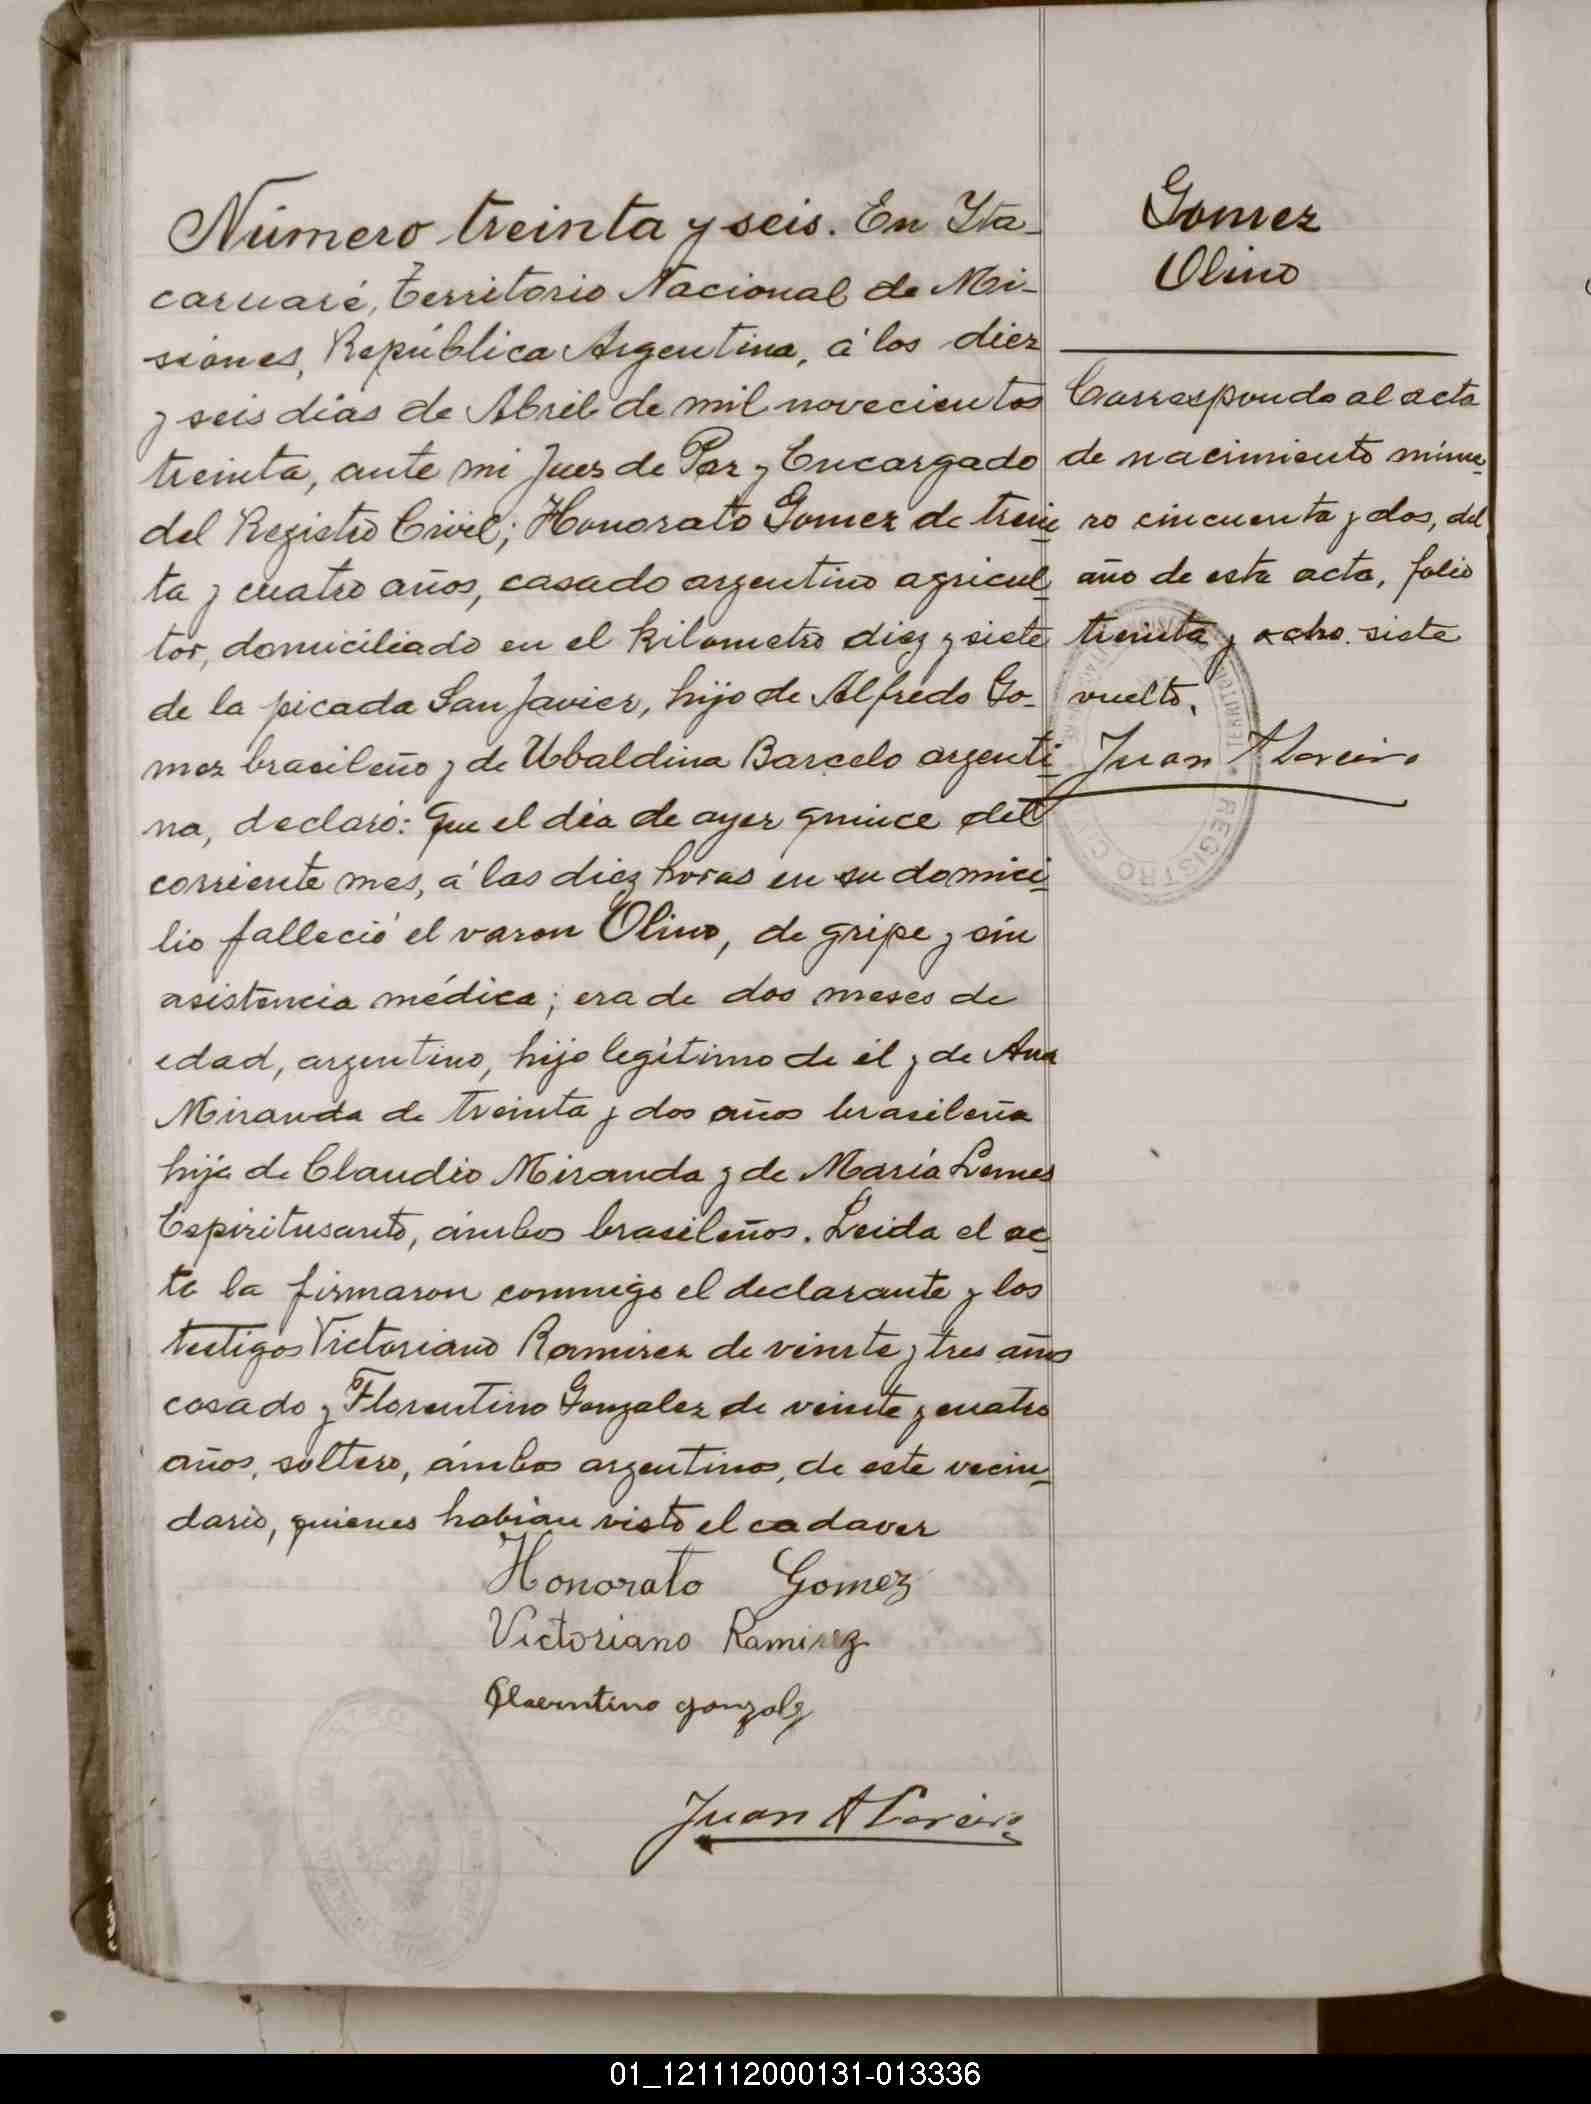 Número treinta y seis. En Ita-
caruaré, Territorio Nacional de Mi-
siones, República Argentina, á los diez
y seis días de Abril de mil novecientos
treinta, ante mi Juez de Paz y Encargado
del Registro Civil; Honorato Gomez de trein-
ta y cuatro años, casado argentino agricul-
tor, domiciliado en el kilometro diez y siete
de la picada San Javier, hijo de Alfredo Go-
mez brasileño y de Ubaldina Barcelo argenti-
na, declaró: Que el día de ayer quince del
corriente mes, á las diez horas en su domici-
lio falleció el varon Olino, de gripe y sin
asistencia médica; era de dos meses de
edad, argentino, hijo legítimo de él y de Ana
Miranda de treinta y dos años brasileña
hija de Claudio Miranda y de María Lemes
Espiritusanto, ámbos brasileños. Leida el ac-
ta la firmaron conmigo el declarante y los
testigos Victoriano Ramirez de veinte y tres años
casado y Florentino Gonzalez de veinte y cuatro
años, soltero, ámbos argentinos, de este vecin-
dario, quienes habian visto el cadaver
Honorato Gomez
Victoriano Ramirez
Juan A
Gomez
Olino
Corresponde al acta
de nacimiento núme-
ro cincuenta y dos, del
año de esta acta, folio
treinta y ocho. siete
vuelto.
Juan A
REGISTRO
01_121112000131-013336